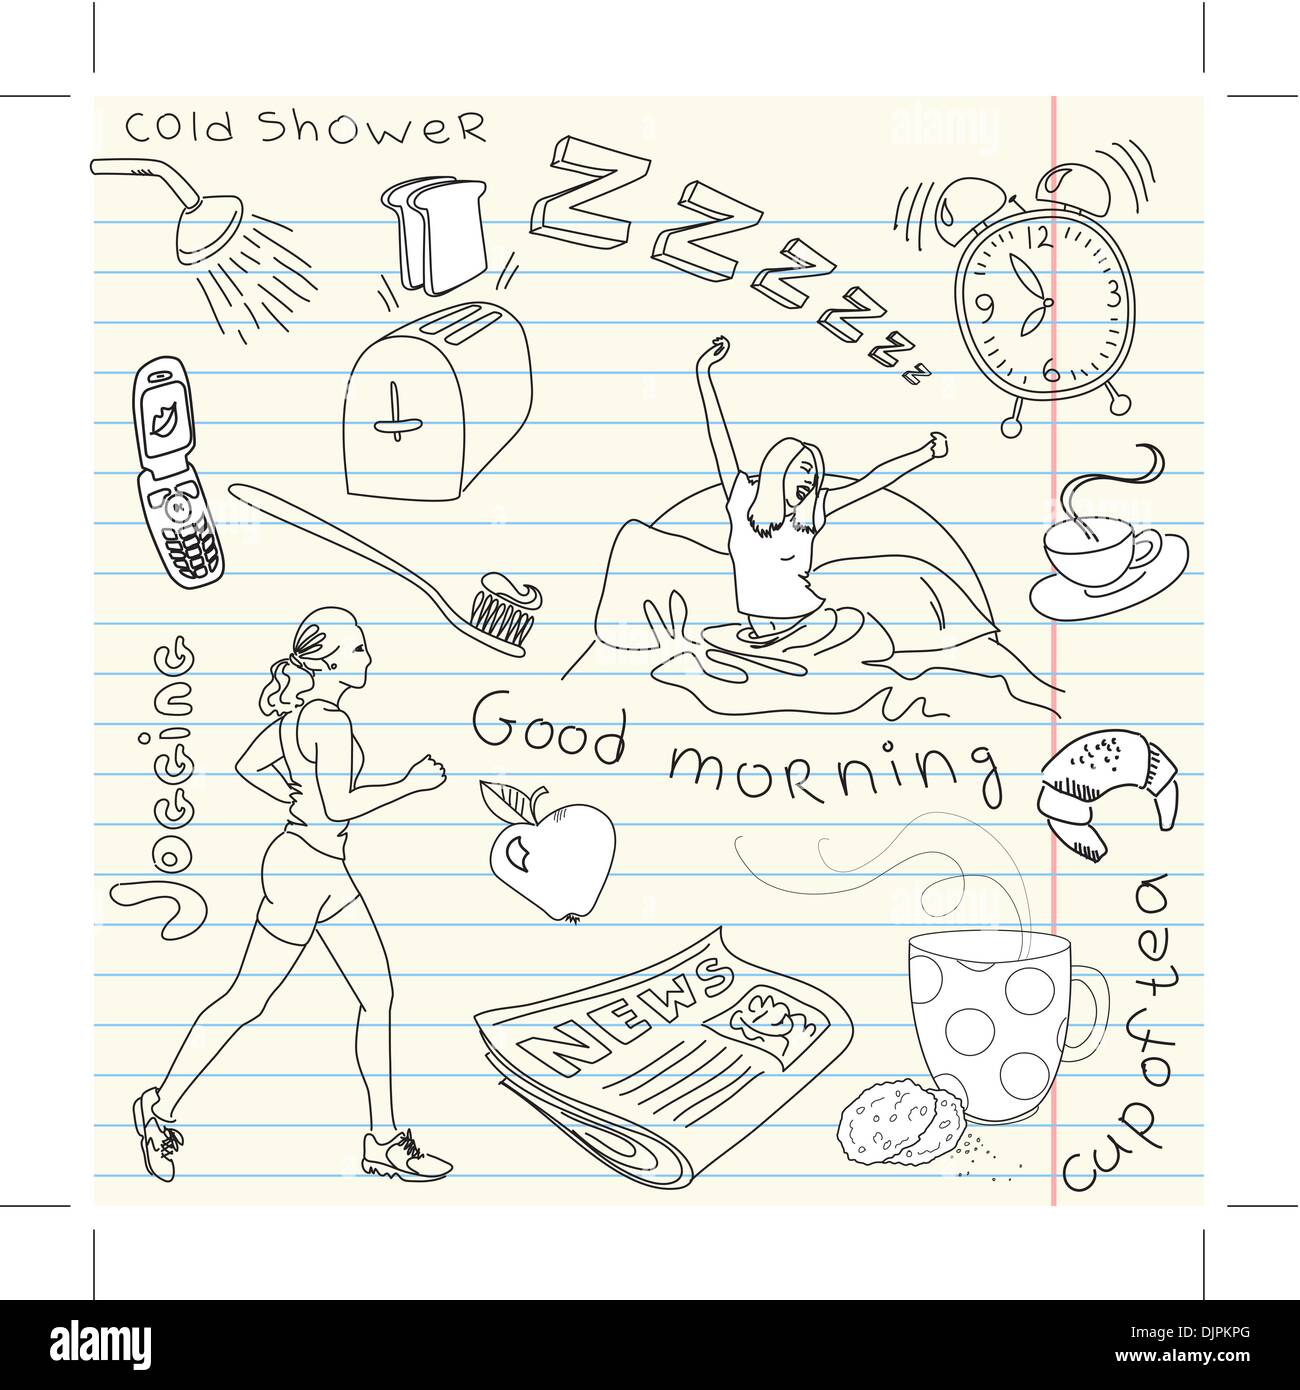 cold shower
Z Z Z Z Z Z
12
3
6
9
Jogging
Good morning
NEWS
cup of tea
alamy
a
alamy
Image ID: DJPKPG
www.alamy.com